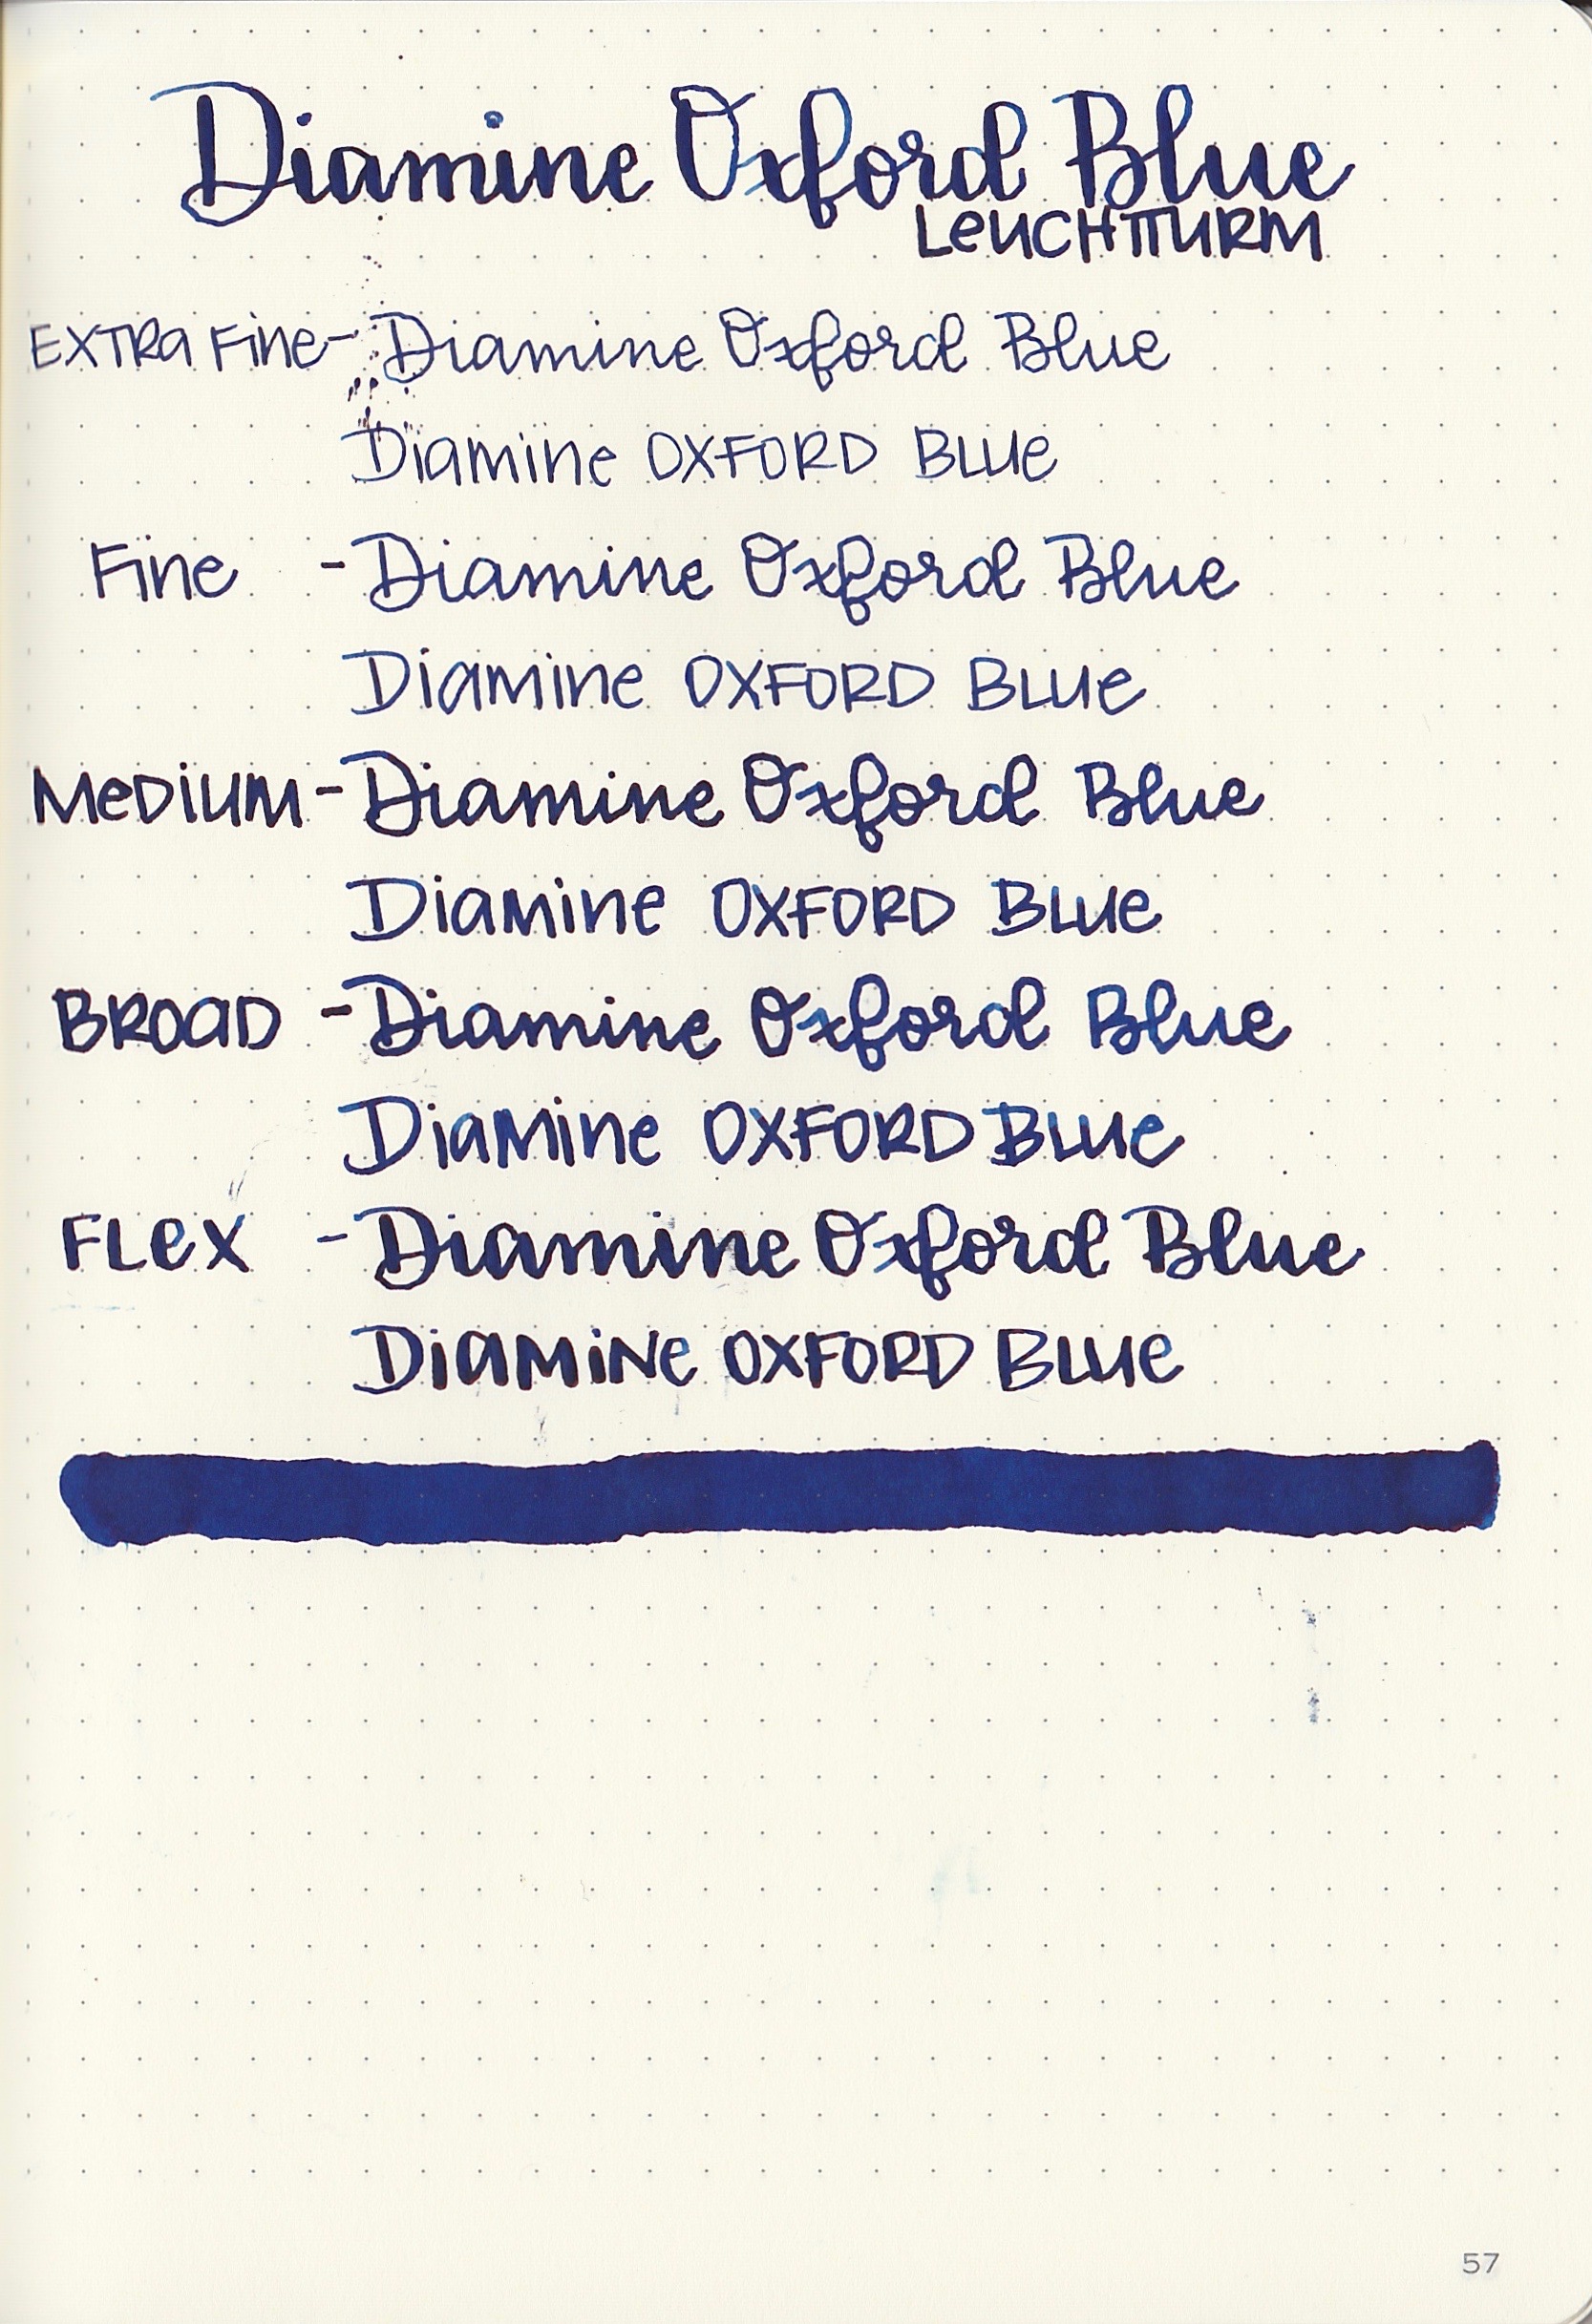 Diamine Oxford Blue
LeUCHTTURM
EXTRa Fine - Diamine Oxford Blue
Diamine OXFORD BLUe
Fine - Diamine Oxford Blue
Diamine OXFORD BLUe
MeDiUM - Diamine Oxford Blue
Diamine OXFORD BLUe
BROaD - Diamine Oxford Blue
DiaMine OXFORD BLUe
FLeX - Diamine Oxford Blue
DiaMiNe OXFORD BLUe
57